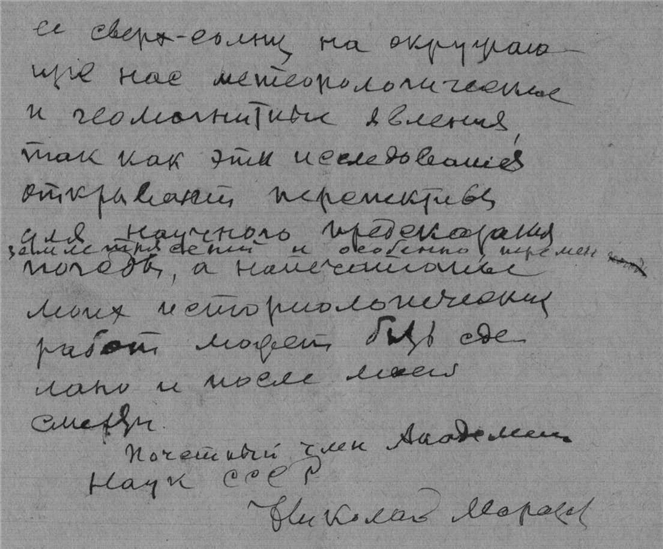 ее сверх-солнц на окружаю-
щие нас метеорологические
и геомагнитные явления,
так как эти исследования
открывают перспективы
для научного предсказания
землетрясений и особенно перемен
погоды, а напечатанье
моих историологических
работ может быть сде
лано и после моей
смерти.
Почетный член Академии
Наук СССР
Николай Морозов